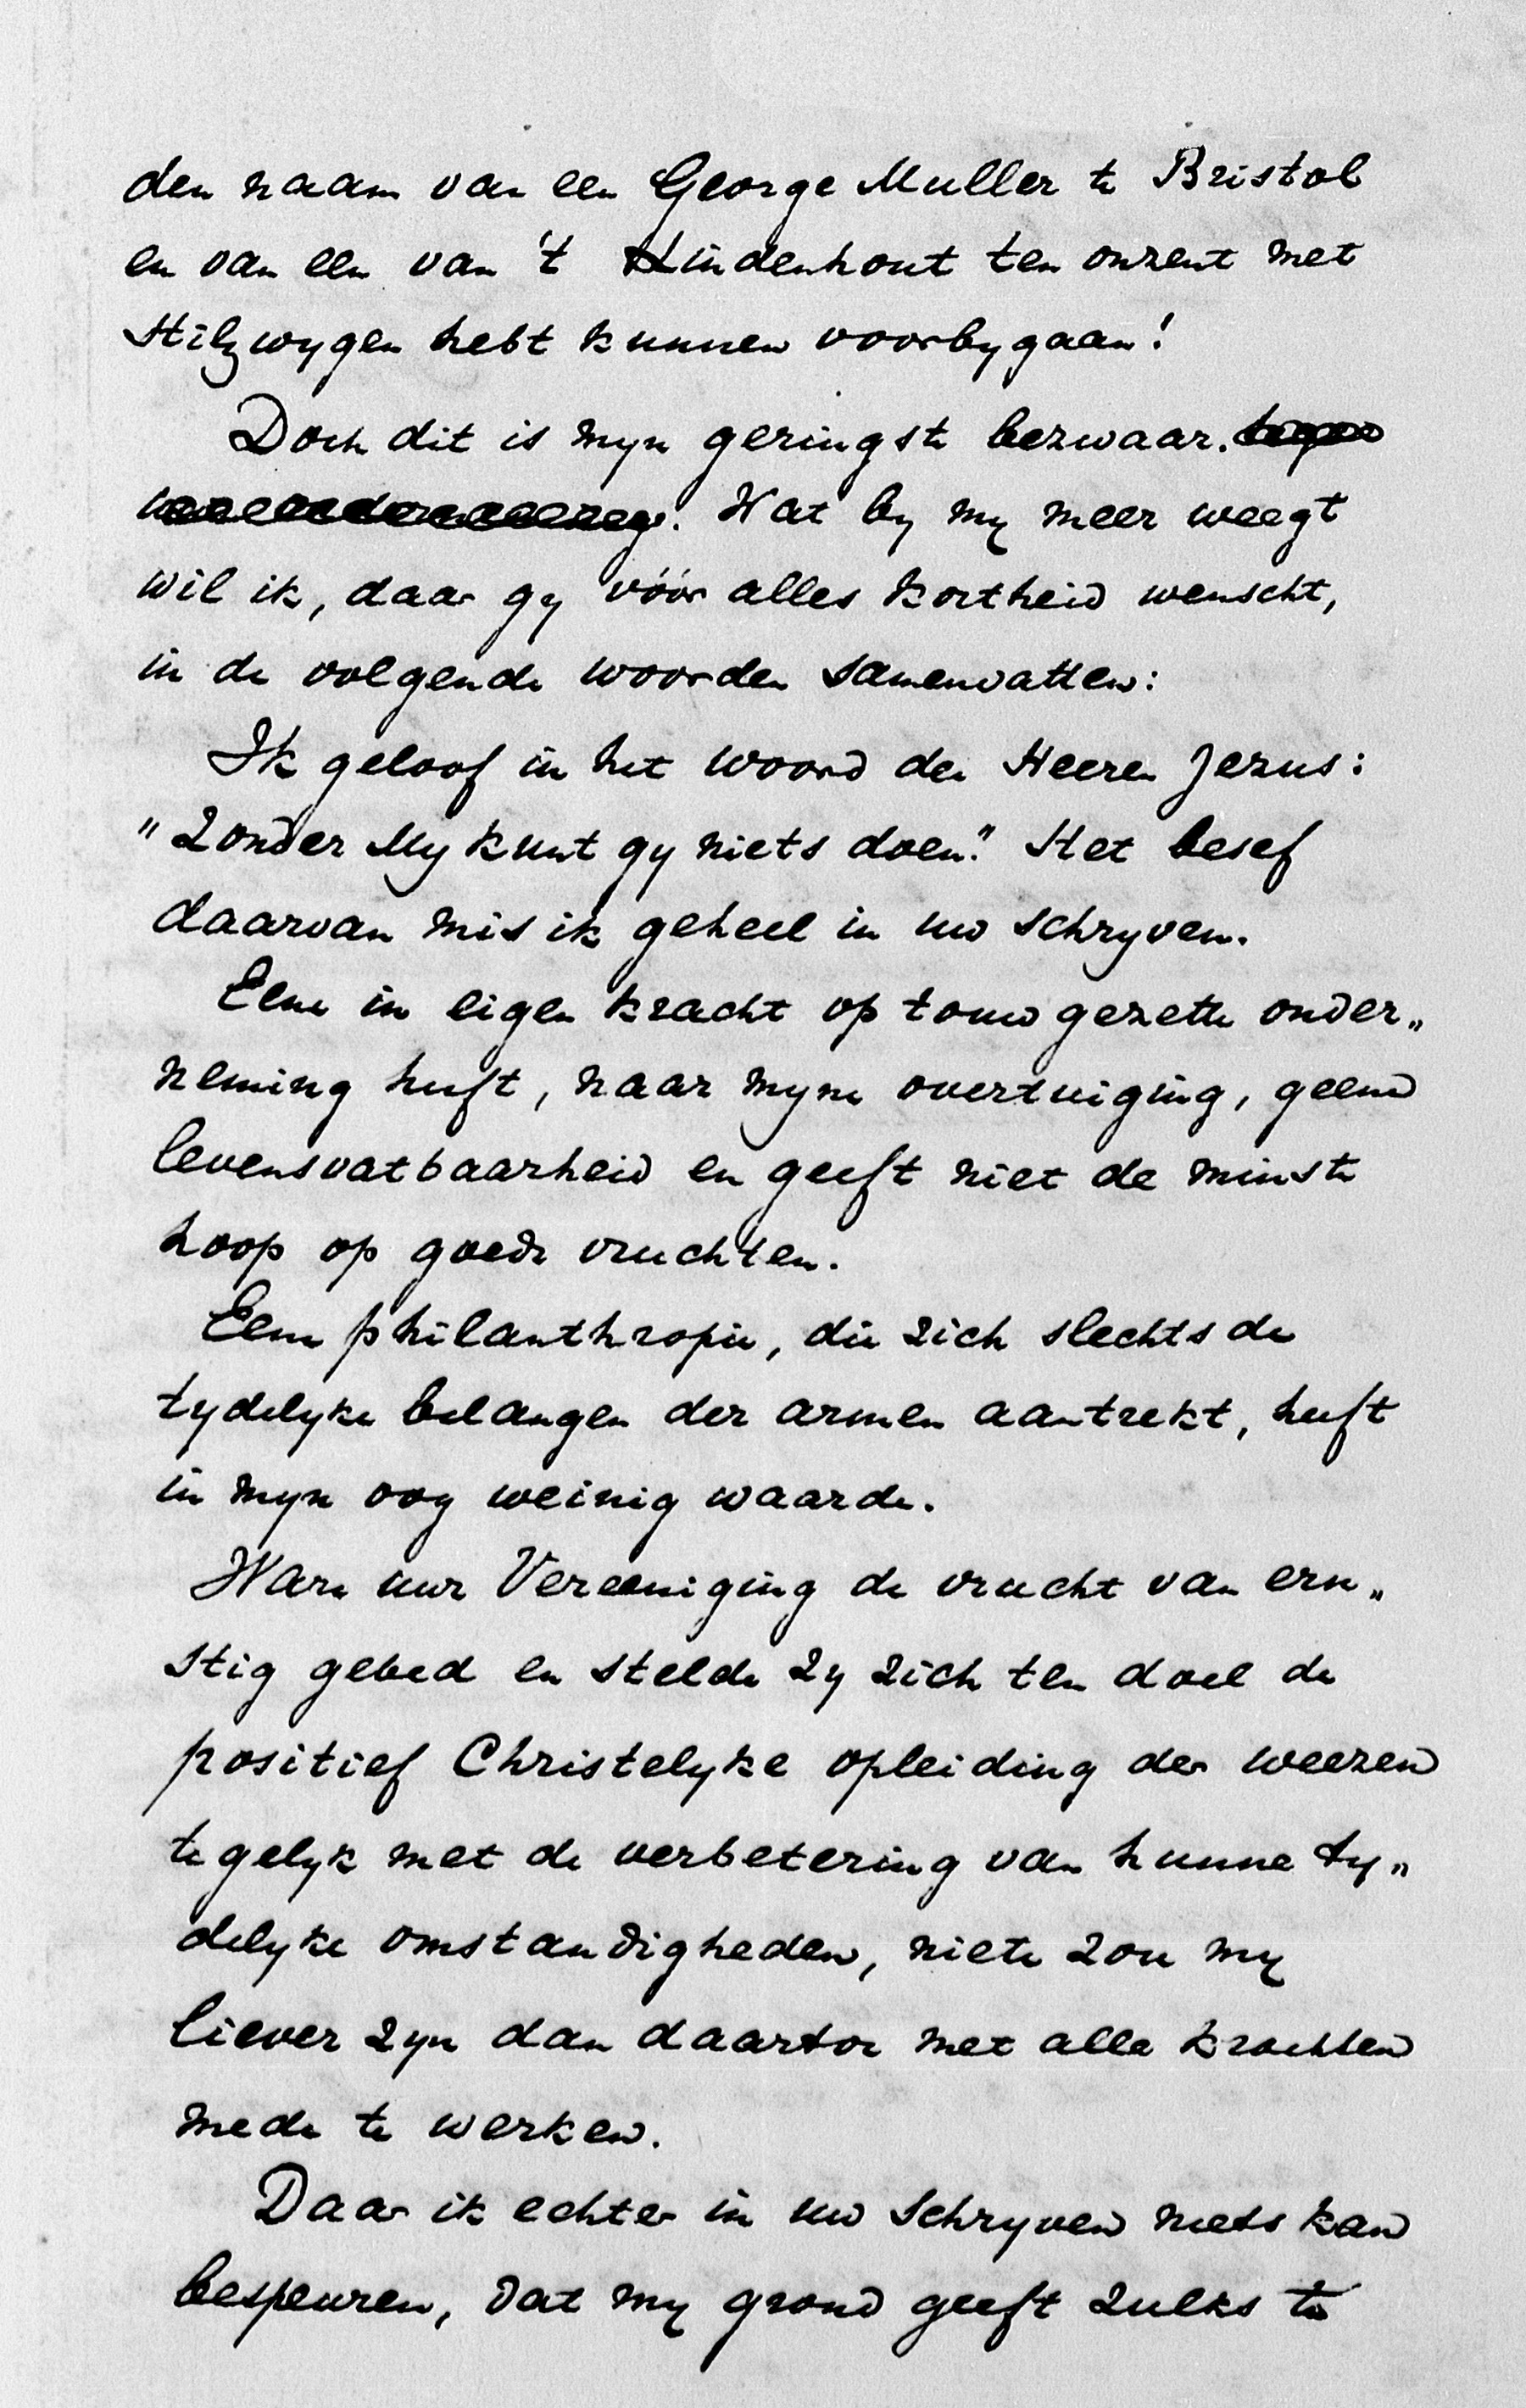 den naam van een George Muller te Bristol
en van een van 't Lindenhout ten onzent met
stilzwygen hebt kunnen voorbygaan!
Doch dit is myn geringste bezwaar.
Wat by my meer weegt
wil ik, daar gy vóór alles kortheid wenscht,
in de volgende woorden samenvatten:
Ik geloof in het woord des Heeren Jezus:
"Zonder My kunt gy niets doen." Het besef
daarvan mis ik geheel in uw schryven.
Eene in eigen kracht op touw gezette onder„
neming heeft, naar myne overtuiging, geene
levensvatbaarheid en geeft niet de minste
hoop op goede vruchten.
Eene philanthropie, die zich slechts de
tydelyke belangen der armen aantrekt, heeft
in myn oog weinig waarde.
Ware uwe Vereeniging de vrucht van ern„
stig gebed en stelde zy zich ten doel de
positief Christelyke opleiding der weezen
tegelyk met de verbetering van hunne ty„
delyke omstandigheden, niets zou my
liever zyn dan daartoe met alle krachten
mede te werken.
Daar ik echter in uw schryven niets kan
bespeuren, dat my grond geeft zulks te